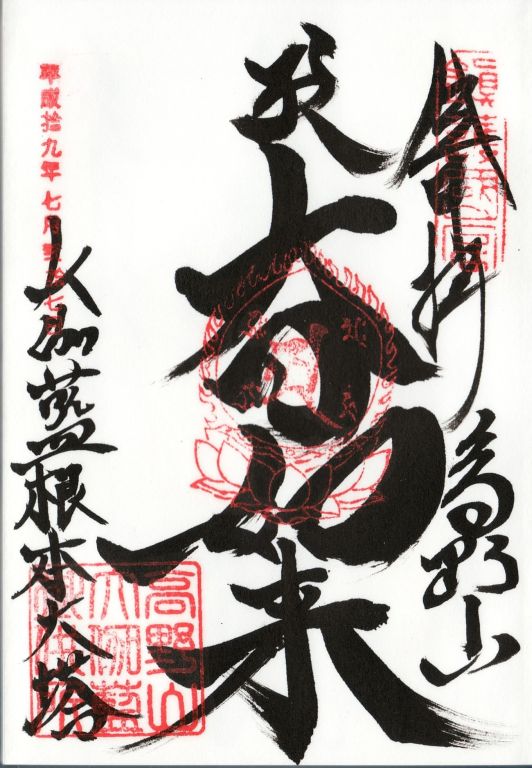 奉拝
高野山
大日如来
平成拾九年七月弐拾七日
大伽藍根本大塔
高野山
大伽藍